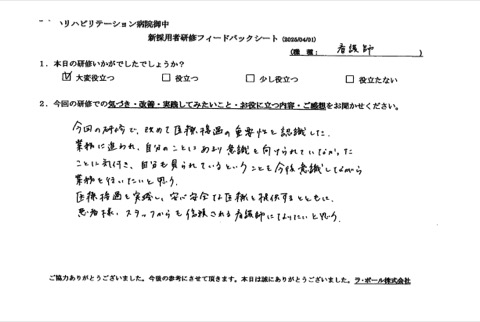 ハリハビリテーション病院御中
新採用者研修フィードバックシート (2025/04/01)
(職種: 看護師 )
1.本日の研修いかがでしたでしょうか?
☑ 大変役立つ □ 役立つ □ 少し役立つ □ 役立たない
2.今回の研修での気づき・改善・実践してみたいこと・お役に立つ内容・ご感想をお聞かせください。
今回の研修で、改めて医療接遇の重要性を認識した。
業務に追われ、自分のことにあまり意識を向けられていなかった
ことに気付き、自分も見られているということを今後意識しながら
業務を行いたいと思う。
医療接遇を実践し、安心安全な医療を提供するとともに、
患者様、スタッフからも信頼される看護師になりたいと思う。
ご協力ありがとうございました。今後の参考にさせて頂きます。本日は誠にありがとうございました。ラ・ポール株式会社